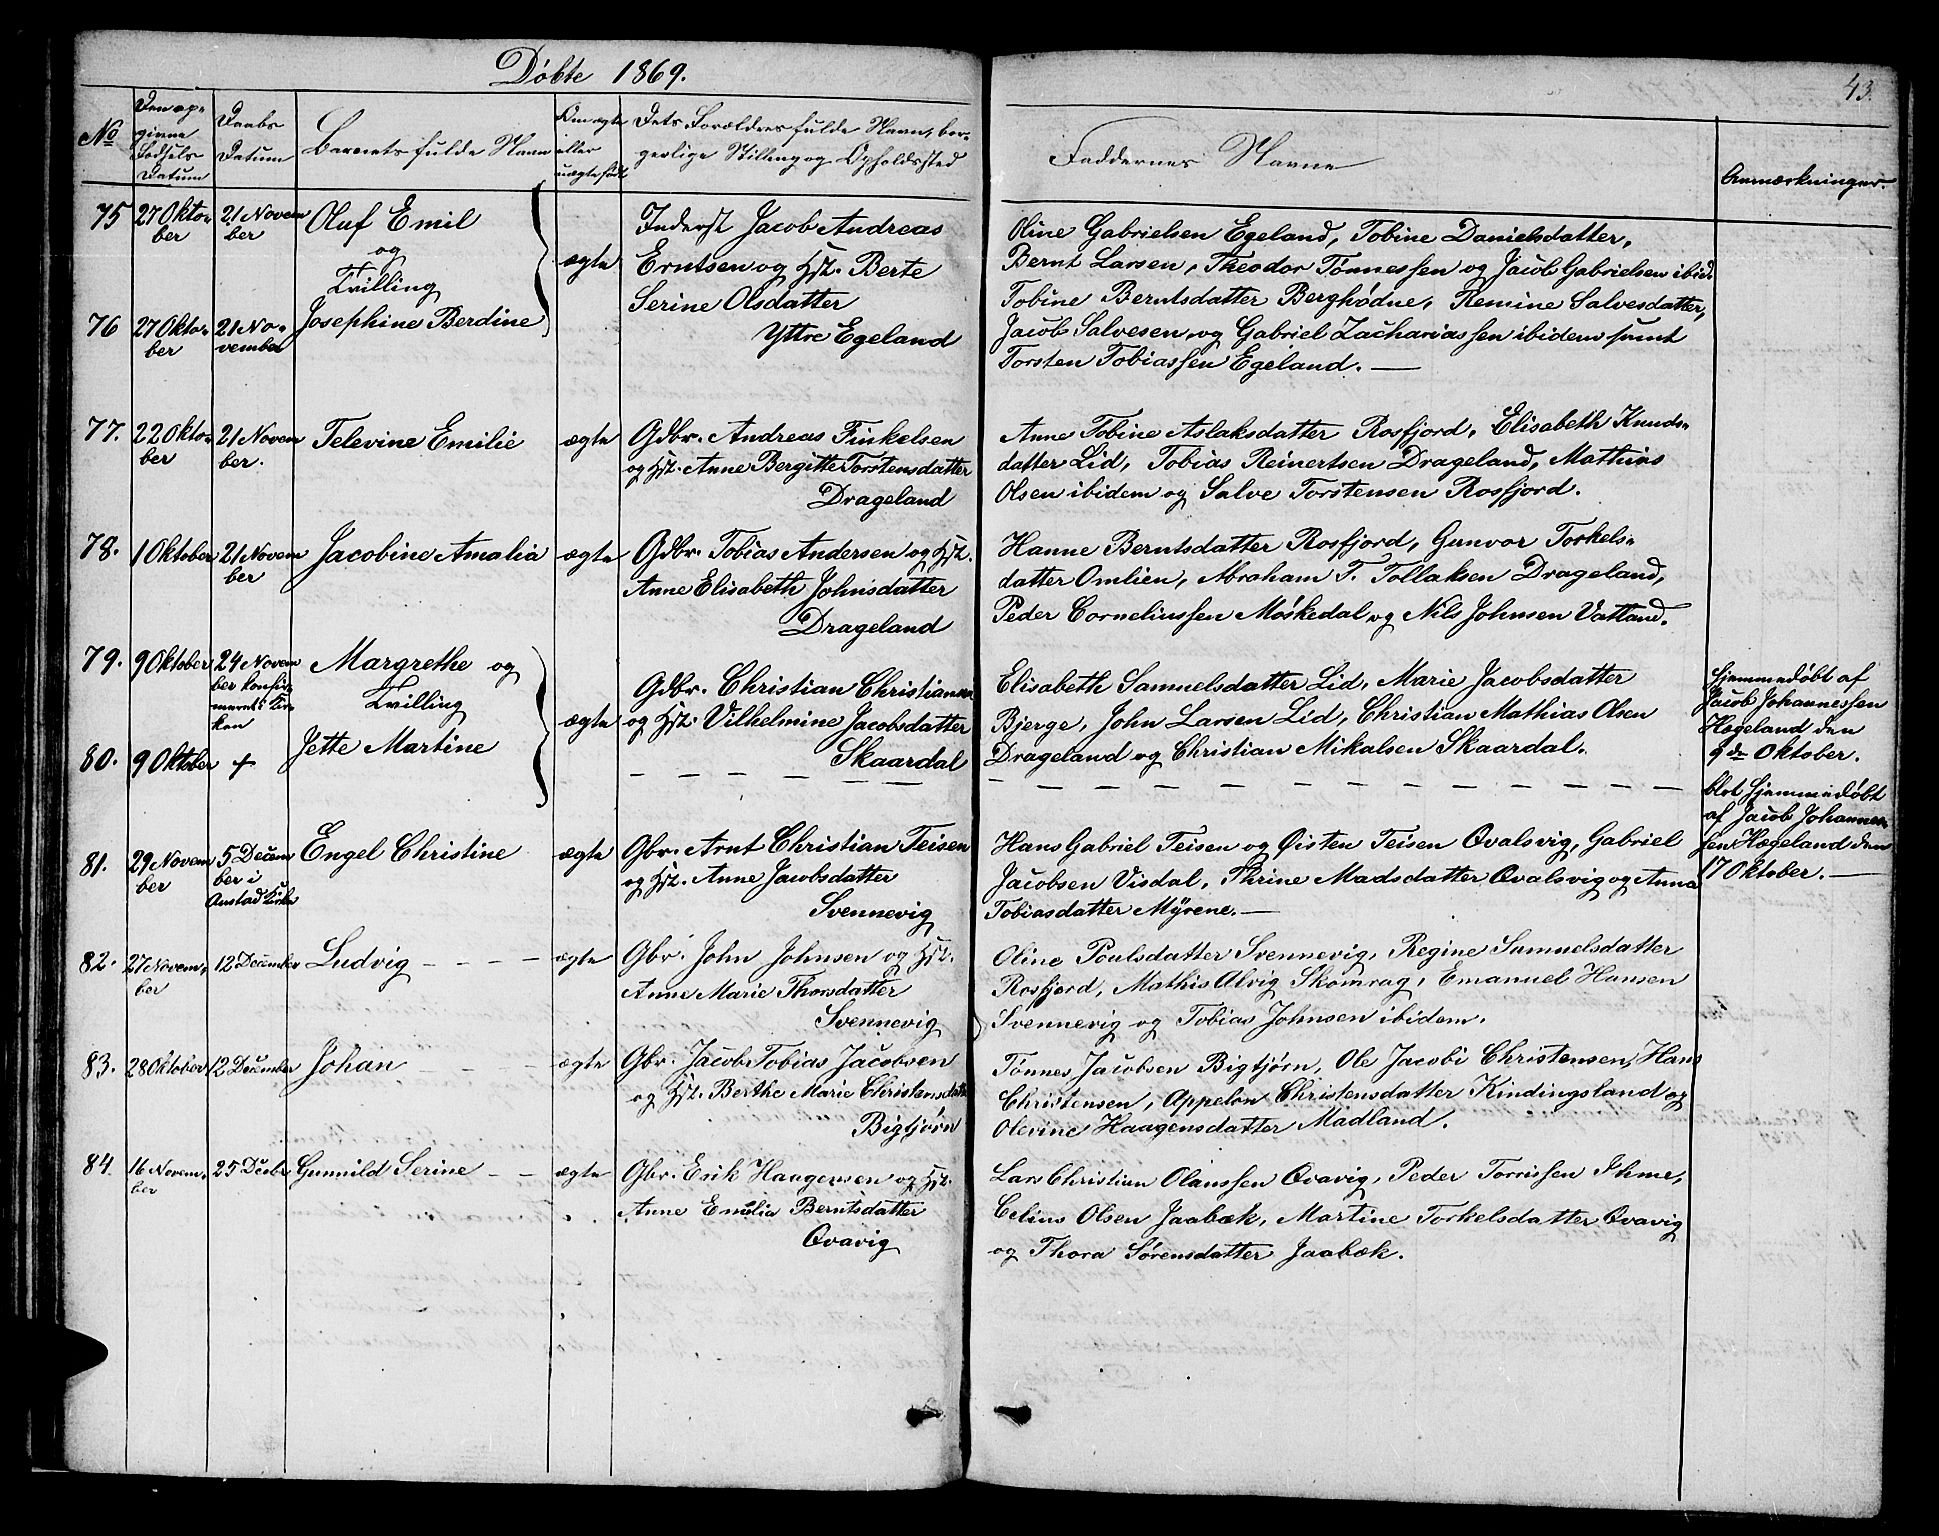 Døbte 1869.
43.
No
Den op-
givne
Fødsels
Datum
Daabs
Datum
Barnets fulde Navn
Om ægte
eller
uægte født
Dets Forældres fulde Navn, bor-
gerlige Stilling og Opholdssted
Faddernes Navne
Anmærkninger.
75 27 Okto-
ber
21 Novem
ber
Oluf Emil
og
Tvilling
76 27 Okto-
ber
21 No-
vember
Josephine Berdine
ægte
Inderst Jacob Andreas
Erntsen og Hst. Berte
Serine Olsdatter
Yttre Egeland
Oline Gabrielsen Egeland, Tobine Danielsdatter,
Bernt Larsen, Theodor Tønnessen og Jacob Gabrielsen ibid.
Tobine Berntsdatter Berghødne, Remine Salvesdatter,
Jacob Salvesen, og Gabriel Zachariassen ibidem samt
Torsten Tobiassen Egeland. —
77. 22 Okto-
ber
21 Novem
ber.
Televine Emilie
ægte
Gdbr. Andreas Tinkelsen
og Hst. Anne Bergitte Torstensdatter
Drageland
Anne Tobine Aslaksdatter Rosfjord, Elisabeth Knuds-
datter Lid, Tobias Reinertsen Drageland, Mathias
Olsen ibidem og Salve Torstensen Rosfjord.
78. 1 Oktober
21 Novem
ber
Jacobine Amalia
ægte
Gdbr. Tobias Andersen og Hst.
Anne Elisabeth Johnsdatter
Drageland
Hanne Berntsdatter Rosfjord, Gunvor Torkels-
datter Omlien, Abraham T. Tollaksen Drageland,
Peder Corneliussen Møskedal og Nils Johnsen Vatland.
79. 9 Oktober
24 Novem
ber konfir
meret i Kir
ken
Margrethe og
Tvilling
80. 9 Oktober +
Jette Martine
ægte
Gdbr. Christian Christiansen
og Hst. Vilhelmine Jacobsdatter
Skaardal
Elisabeth Samuelsdatter Lid, Marie Jacobsdatter
Bjerge, John Larsen Lid, Christian Mathias Olsen
Drageland og Christian Mikalsen Skaardal.
Hjemmedøbt af
Jacob Johannessen
Hægeland den
9de Oktober.
blot Hjemmedøbt
af Jacob Johannes-
sen Hægeland den
17 Oktober. —
81. 29 Novem
ber
5 Decem
ber i
Anstad Kirke
Engel Christine
ægte
Gbr. Arnt Christian Teisen
og Hst. Anne Jacobsdatter
Svennevig
Hans Gabriel Teisen og Øisten Teisen Qvalsvig, Gabriel
Jacobsen Visdal, Thrine Madsdatter Qvalsvig og Anna
Tobiasdatter Myrene. —
82. 27 Novem-
ber
12 December
Ludvig
ægte
Gbr. John Johnsen og Hst.
Anne Marie Thorsdatter
Svennevig
Oline Poulsdatter Svennevig, Regine Samuelsdatter
Rosfjord, Mathis Alvig Skomrag, Emanuel Hansen
Svennevig og Tobias Johnsen ibidem.
83. 28 Oktober
12 December
Johan
ægte
Gbr. Jacob Tobias Jacobsen
og Hst. Berthe Marie Christensdatter
Bigtjørn
Tønnes Jacobsen Bigtjørn, Ole Jacobi Christensen, Hans
Christensen, Appelon Christensdatter Kindingsland og
Olevine Haagensdatter Madland.
84. 16 Novem-
ber
25 Decbr
Gunnild Serine
ægte
Gbr. Erik Haagensen og Hst.
Anne Emilia Berntsdatter
Qvavig
Lars Christian Olaussen Qvavig, Peder Torrissen Ihme,
Celius Olsen Jaabæk, Martine Torkelsdatter Qvavig
og Thora Sørensdatter Jaabæk.